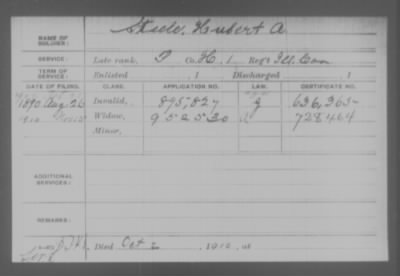 NAME OF SOLDIER: Steele, Hubert A.
SERVICE: Late rank, P Co. H, 1 Reg't Ill. Cav
TERM OF SERVICE: Enlisted , 1 Discharged , 1
DATE OF FILING. CLASS. APPLICATION NO. LAW. CERTIFICATE NO.
1890 Aug 26 Invalid, 895,827 g 636,365
1910 Widow, 952530 728464
Minor,
ADDITIONAL SERVICES:
REMARKS:
Died Oct 2, 1910, at